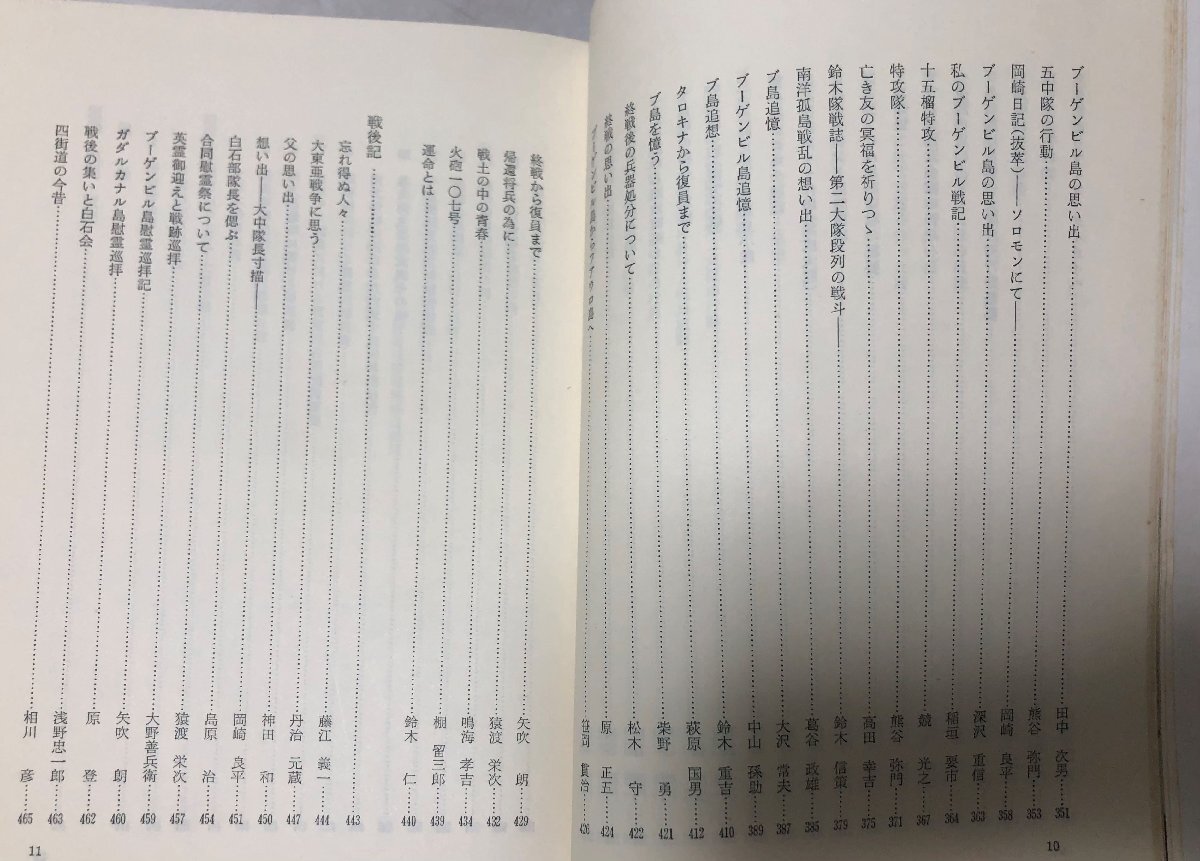 ブーゲンビル島の思い出……田中 次男 351
五中隊の行動……熊谷 弥門 353
岡崎日記(抜萃)——ソロモンにて——……岡崎 良平 358
ブーゲンビル島の思い出……深沢 重信 363
私のブーゲンビル戦記……稲垣 要市 364
十五榴特攻……饒 光之 367
特攻隊……熊谷 弥門 371
亡き友の冥福を祈りつゝ……高田 幸吉 375
鈴木隊戦誌——第二大隊段列の戦斗——……鈴木 信策 379
南洋孤島戦乱の想い出……葛谷 政雄 385
ブ島追憶……大沢 常夫 387
ブーゲンビル島追憶……中山 孫助 389
ブ島追想……鈴木 重吉 410
タロキナから復員まで……萩原 国男 412
ブ島を憶う……柴野 勇 421
終戦後の兵器処分について……松木 守 422
終戦の思い出……原 正五 424
ブーゲンビル島からファウロ島へ……笹岡 貫治 426
10
終戦から復員まで……矢吹 朗 429
帰還将兵の為に……猿渡 栄次 432
戦土の中の青春……鳴海 孝吉 434
火砲一〇七号……棚 留三郎 439
運命とは……鈴木 仁 440
戦後記……443
忘れ得ぬ人々……藤江 義一 444
大東亜戦争に思う……丹治 元蔵 447
父の思い出……神田 和 450
想い出——大中隊長寸描——……岡崎 良平 451
白石部隊長を偲ぶ……島原 治 454
合同慰霊祭について……猿渡 栄次 457
英霊御迎えと戦跡巡拝……大野善兵衛 459
ブーゲンビル島慰霊巡拝記……矢吹 朗 460
ガダルカナル島慰霊巡拝……原 登 462
戦後の集いと白石会……浅野忠一郎 463
四街道の今昔……相川 彦 465
11